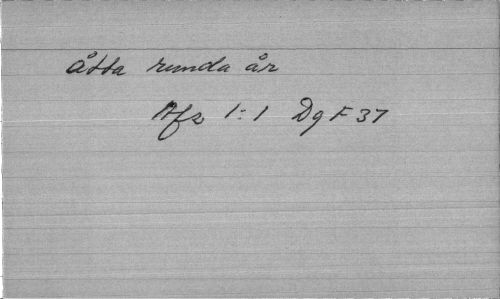 åtta runda år
Afz 1:1 DgF 37